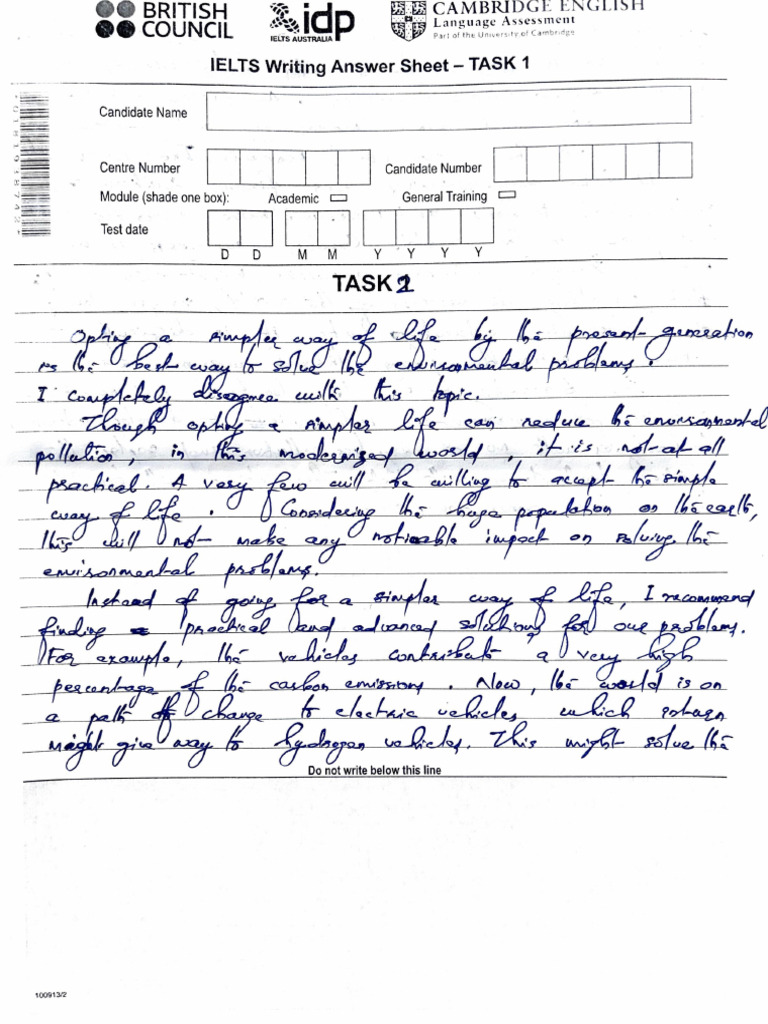 BRITISH COUNCIL
idp
IELTS AUSTRALIA
CAMBRIDGE ENGLISH
Language Assessment
Part of the University of Cambridge
IELTS Writing Answer Sheet – TASK 1
Candidate Name
Centre Number
Candidate Number
Module (shade one box): Academic General Training
Test date
D D M M Y Y Y Y
TASK 2
Opting a simpler way of life by the present generation
is the best way to solve the environmental problems.
I completely disagree with this topic.
Though opting a simpler life can reduce the environmental
pollution, in this modernized world, it is not at all
practical. A very few will be willing to accept the simple
way of life. Considering the huge population on the earth,
this will not make any noticable impact on solving the
environmental problems.
Instead of going for a simpler way of life, I recommend
finding practical and advanced solutions for our problems.
For example, the vehicles contribute a very high
percentage of the carbon emissions. Now, the world is on
a path of change to electric vehicles which inturn
might give way to hydrogen vehicles. This might solve the
Do not write below this line
100913/2